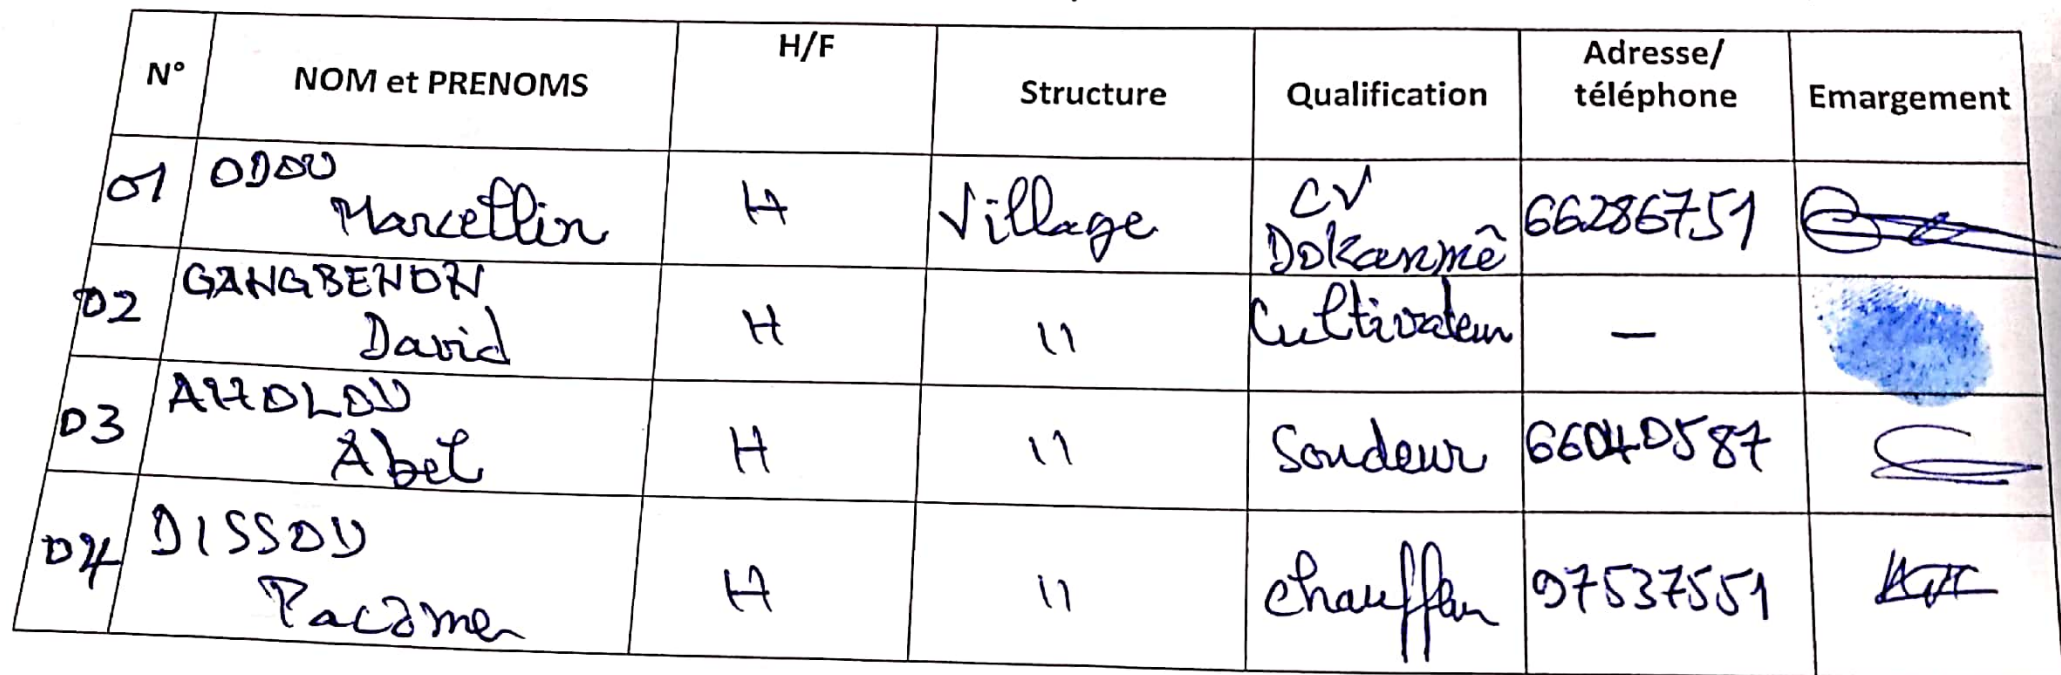 N° NOM et PRENOMS H/F Structure Qualification Adresse/ téléphone Emargement
01 ODOU Marcellin H Village CV Dokanmê 66286751
02 GANGBENON David H 11 Cultivateur —
03 AHOLOU Abel H 11 Soudeur 66040587
04 DISSOU Pacôme H 11 chauffeur 97537551